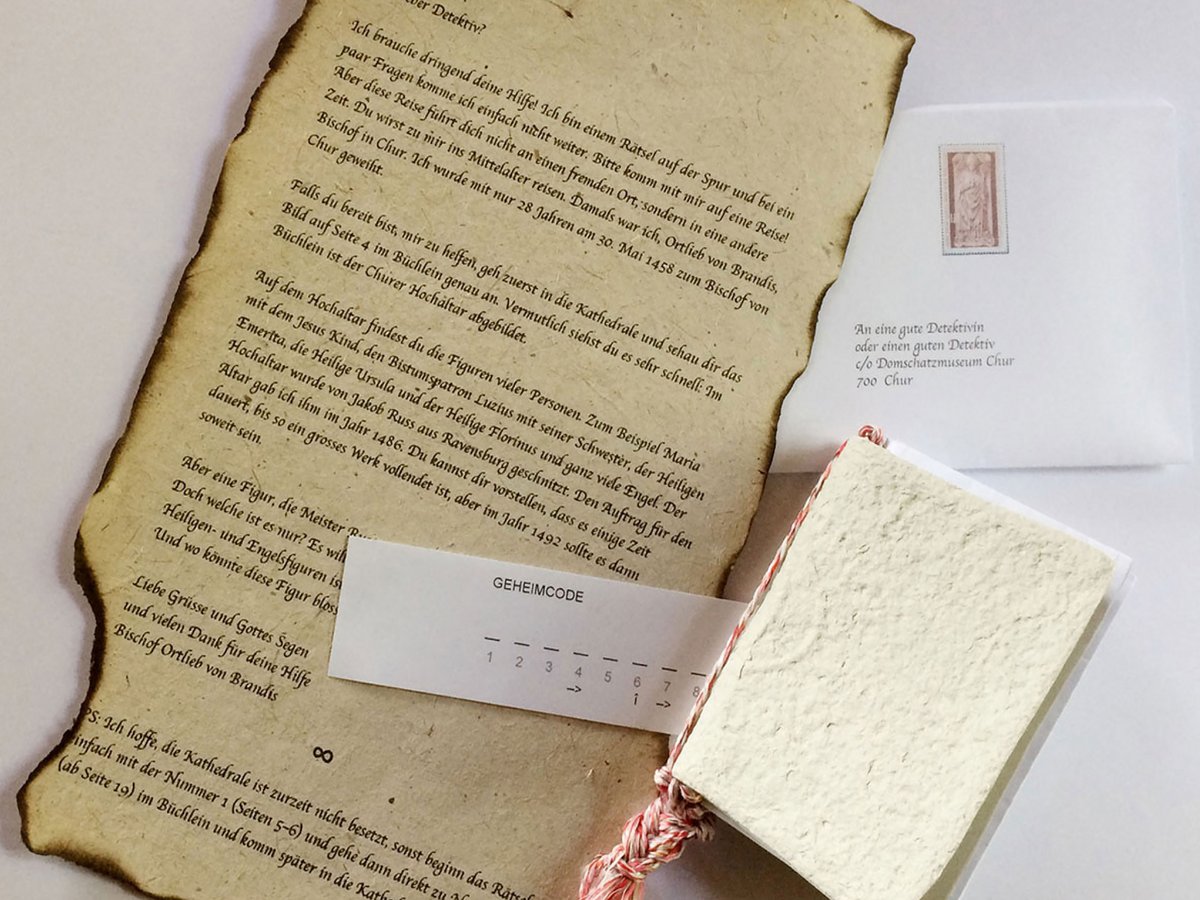 Detektiv?
Ich brauche dringend deine Hilfe! Ich bin einem Rätsel auf der Spur und bei ein
paar Fragen komme ich einfach nicht weiter. Bitte komm mit mir auf eine Reise!
Aber diese Reise führt dich nicht an einen fremden Ort, sondern in eine andere
Zeit. Du wirst zu mir ins Mittelalter reisen. Damals war ich, Ortlieb von Brandis,
Bischof in Chur. Ich wurde mit nur 28 Jahren am 30. Mai 1458 zum Bischof von
Chur geweiht.
Falls du bereit bist, mir zu helfen, geh zuerst in die Kathedrale und schau dir das
Bild auf Seite 4 im Büchlein genau an. Vermutlich siehst du es sehr schnell: Im
Büchlein ist der Churer Hochaltar abgebildet.
Auf dem Hochaltar findest du die Figuren vieler Personen. Zum Beispiel Maria
mit dem Jesus Kind, den Bistumspatron Luzius mit seiner Schwester, der Heiligen
Emerita, die Heilige Ursula und der Heilige Florinus und ganz viele Engel. Der
Hochaltar wurde von Jakob Russ aus Ravensburg geschnitzt. Den Auftrag für den
Altar gab ich ihm im Jahr 1486. Du kannst dir vorstellen, dass es einige Zeit
dauert, bis so ein grosses Werk vollendet ist, aber im Jahr 1492 sollte es dann
soweit sein.
Aber eine Figur, die Meister
Doch welche ist es nur? Es
Heiligen- und Engelsfiguren
Und wo könnte diese Figur
Liebe Grüsse und Gottes Segen
und vielen Dank für deine Hilfe
Bischof Ortlieb von Brandis
∞
PS: Ich hoffe, die Kathedrale ist zurzeit nicht besetzt, sonst beginn das
einfach mit der Nummer 1 (Seiten 5-6) und gehe dann direkt zu
(ab Seite 19) im Büchlein und komm später in die
An eine gute Detektivin
oder einen guten Detektiv
c/o Domschatzmuseum Chur
700 Chur
GEHEIMCODE
1 2 3 4 5 6 7 8